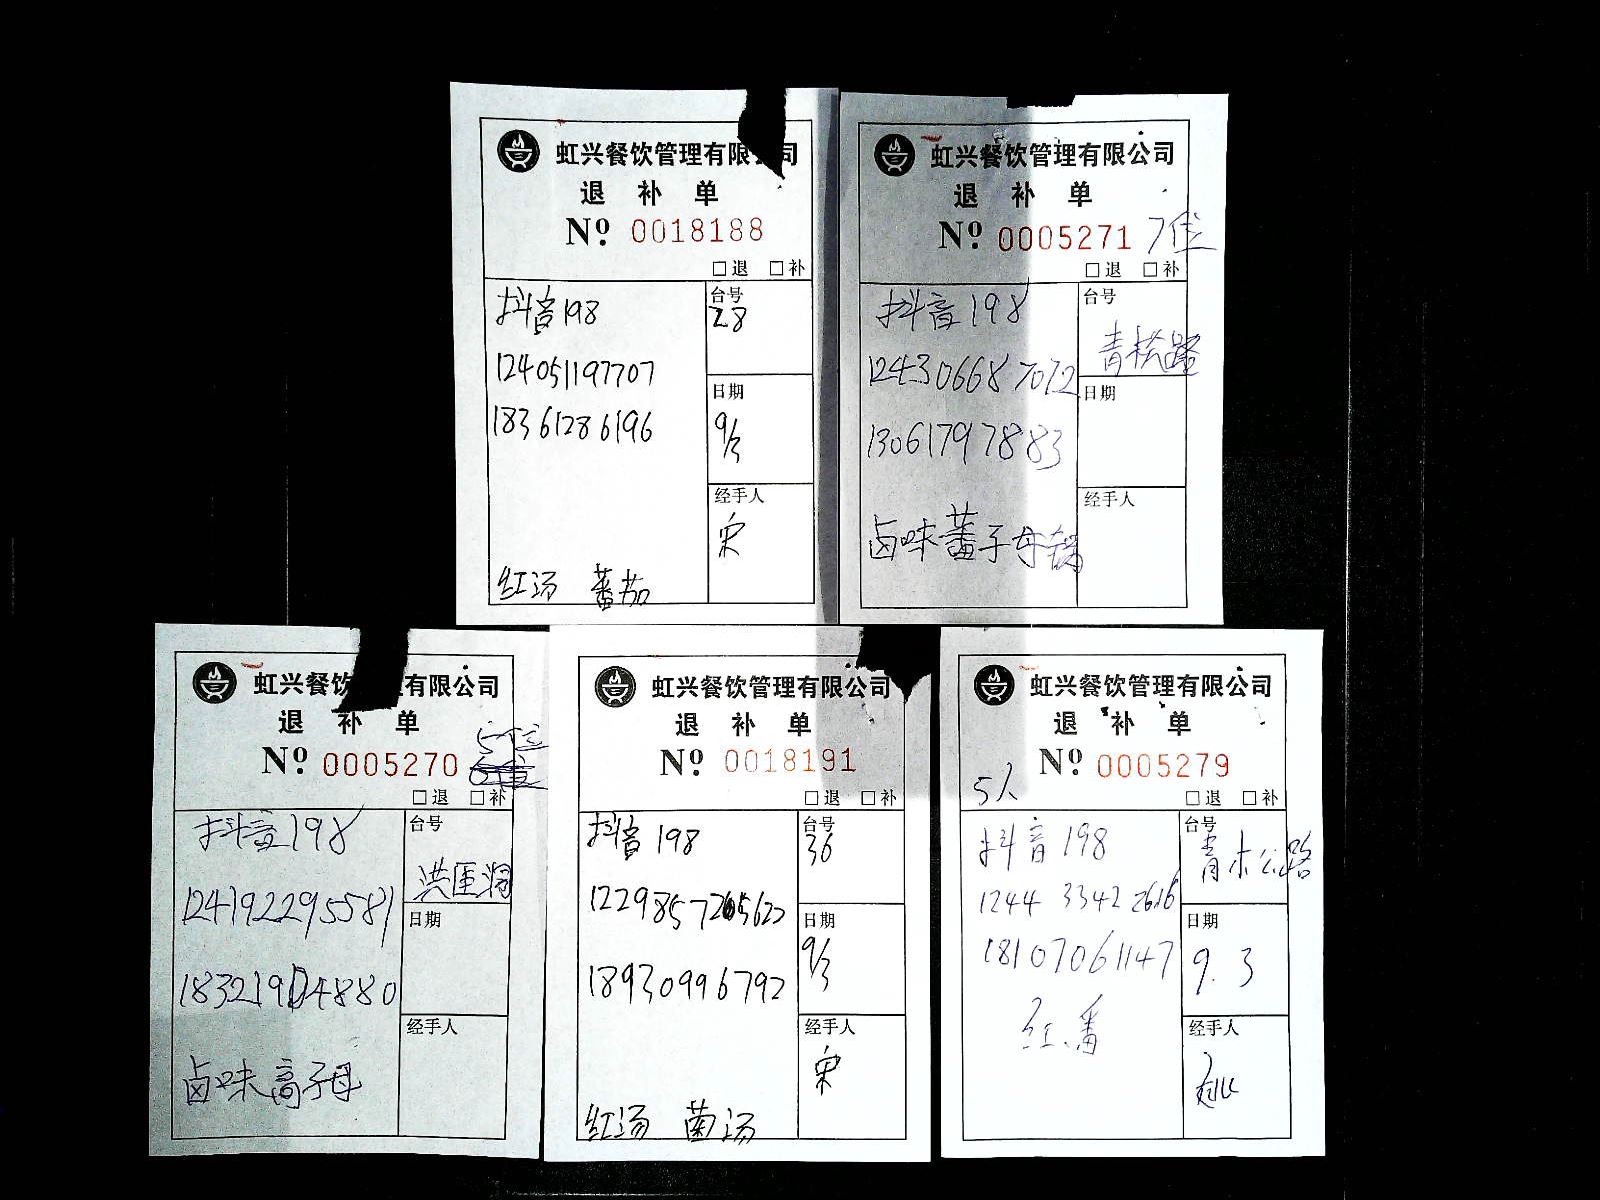 虹兴餐饮管理有限 司
退补单
Nº 0018188
□退 □补
抖音198
台号
28
124051197707
18361286196
日期
9/3
经手人
宋
红汤 蕃茄
虹兴餐饮管理有限公司
退补单
Nº 0005271 7位
□退 □补
抖音198
台号
青松路
124306687072
日期
13061797883
经手人
卤味 子母锅
虹兴餐饮 理有限公司
退补单
Nº 0005270 5位
□退 □补
抖音198
台号
洪匣
124192295581
日期
18321914880
经手人
卤味 子母
虹兴餐饮管理有限公司
退补单
Nº 0018191
□退 □补
抖音198
台号
36
日期
9/3
18930996792
经手人
宋
红汤 菌汤
虹兴餐饮管理有限公司
退补单
5人 Nº 0005279
□退 □补
抖音198
台号
青木公路
1244 3342 2616
日期
9.3
18107061147
红.番
经手人